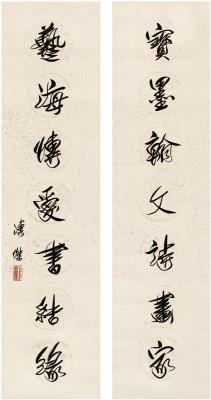 寶墨翰文詩畫家
藝海博愛書結緣
溥傑